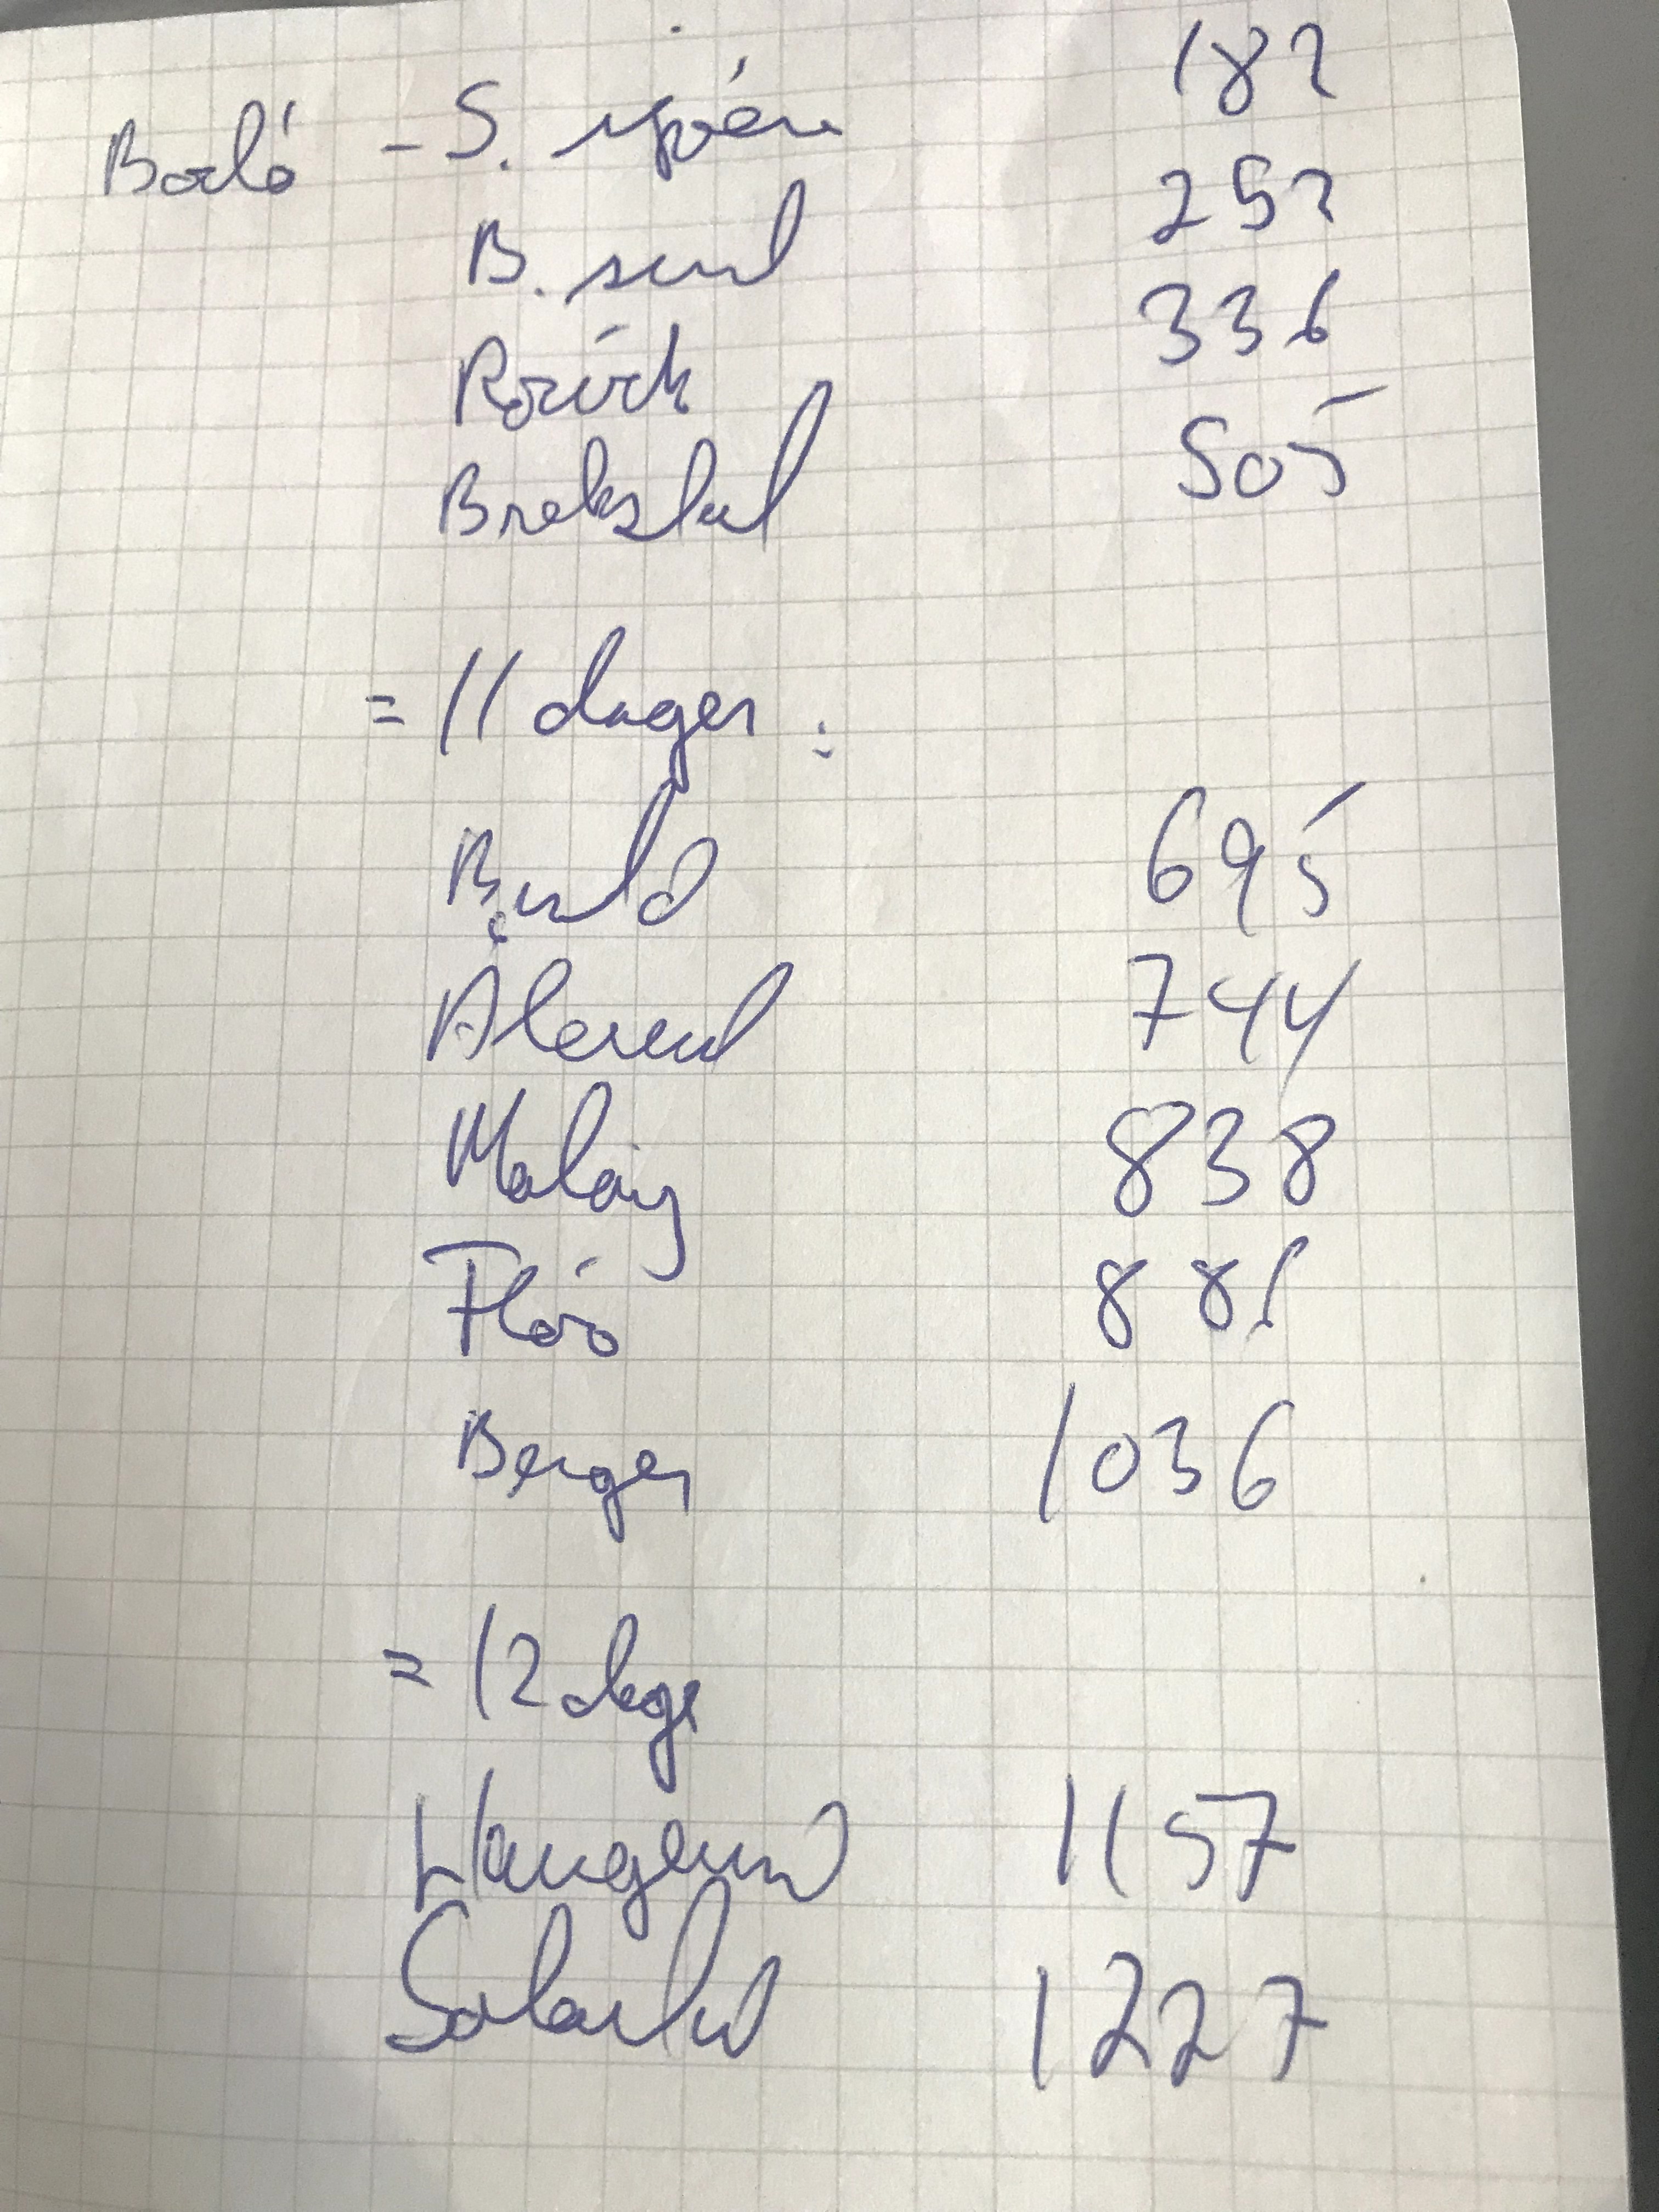 Bodó - S. sjøen 182
B. sund 252
Rørvik 336
Brekstad 505
= 11 dager :
B. sund 695
Ålesund 744
Måløy 838
Florø 886
Bergen 1036
= 12 dage
Haugesund 1157
1227